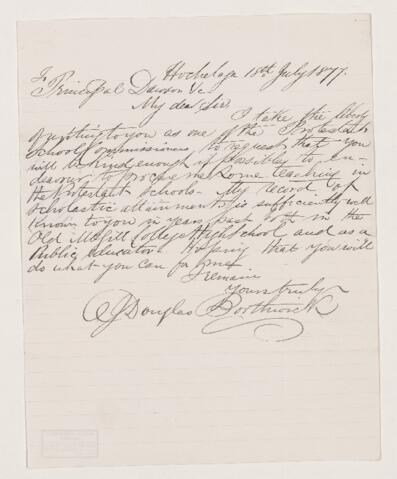 Hochelaga 18th July 1877.
To Principal Dawson &c
My dear Sir,
I take the liberty
of writing to you as one of the Protestant
School Commissioners, to request that you
will be kind enough if possible to en-
deavour to procure me some teaching in
the Protestant Schools - My record of
Scholastic attainments is sufficiently well
known to you in years past both in the
Old McGill College High School and as a
Public Educator. Hoping that you will
do what you can for me
I remain
Yours truly
J Douglas Borthwick